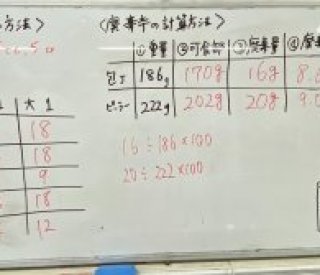 方法〉
大1
18
18
9
18
12
〈廃棄率の計算方法〉
①重量 ②可食部 ③廃棄量 ④廃
包丁 186g 170g 16g 8.
ピーラー 222g 202g 20g 9.0
16÷186×100
20÷222×100